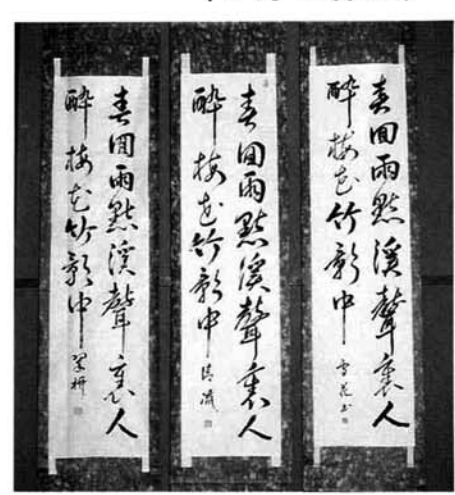 春回雨點溪聲裏人
醉梅花竹影中
春回雨點溪聲裏人
醉梅花竹影中
春回雨點溪聲裏人
醉梅花竹影中